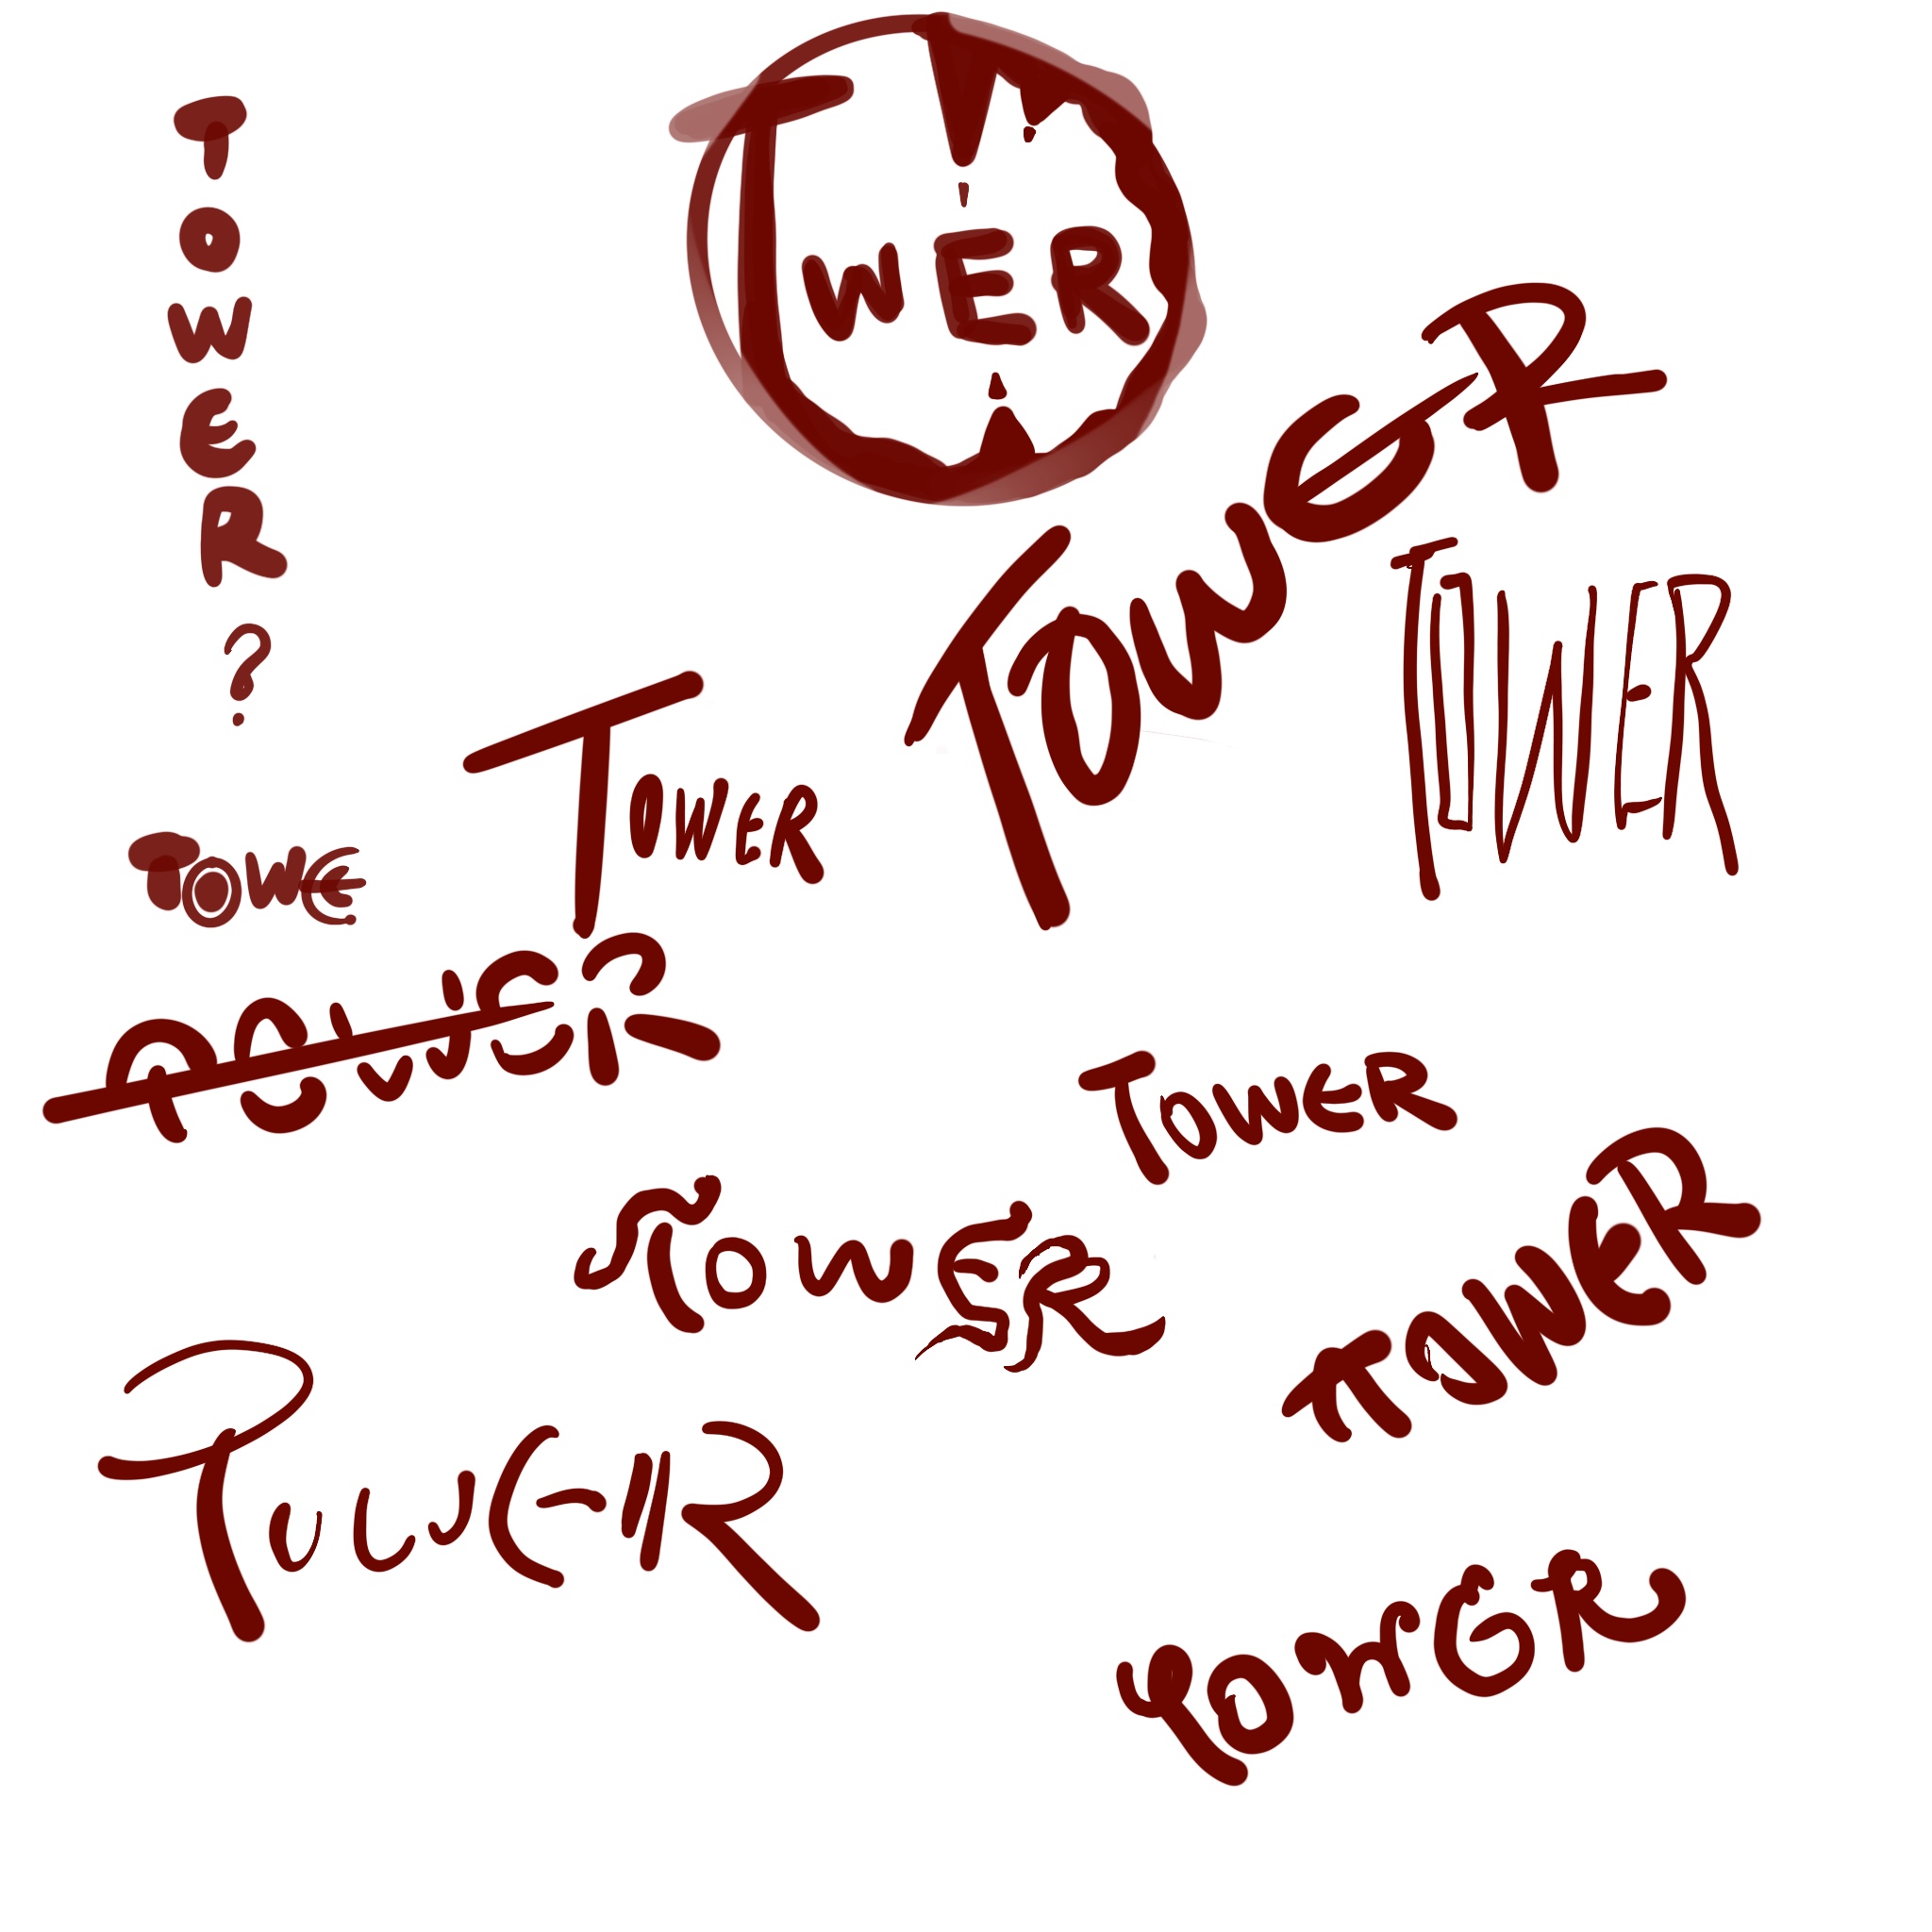 TOWER
TOWER?
TOWER
TOWER
TOWER
TOWE
TOWER
TOWER
TOWER
TOWER
TOWER
TOWER